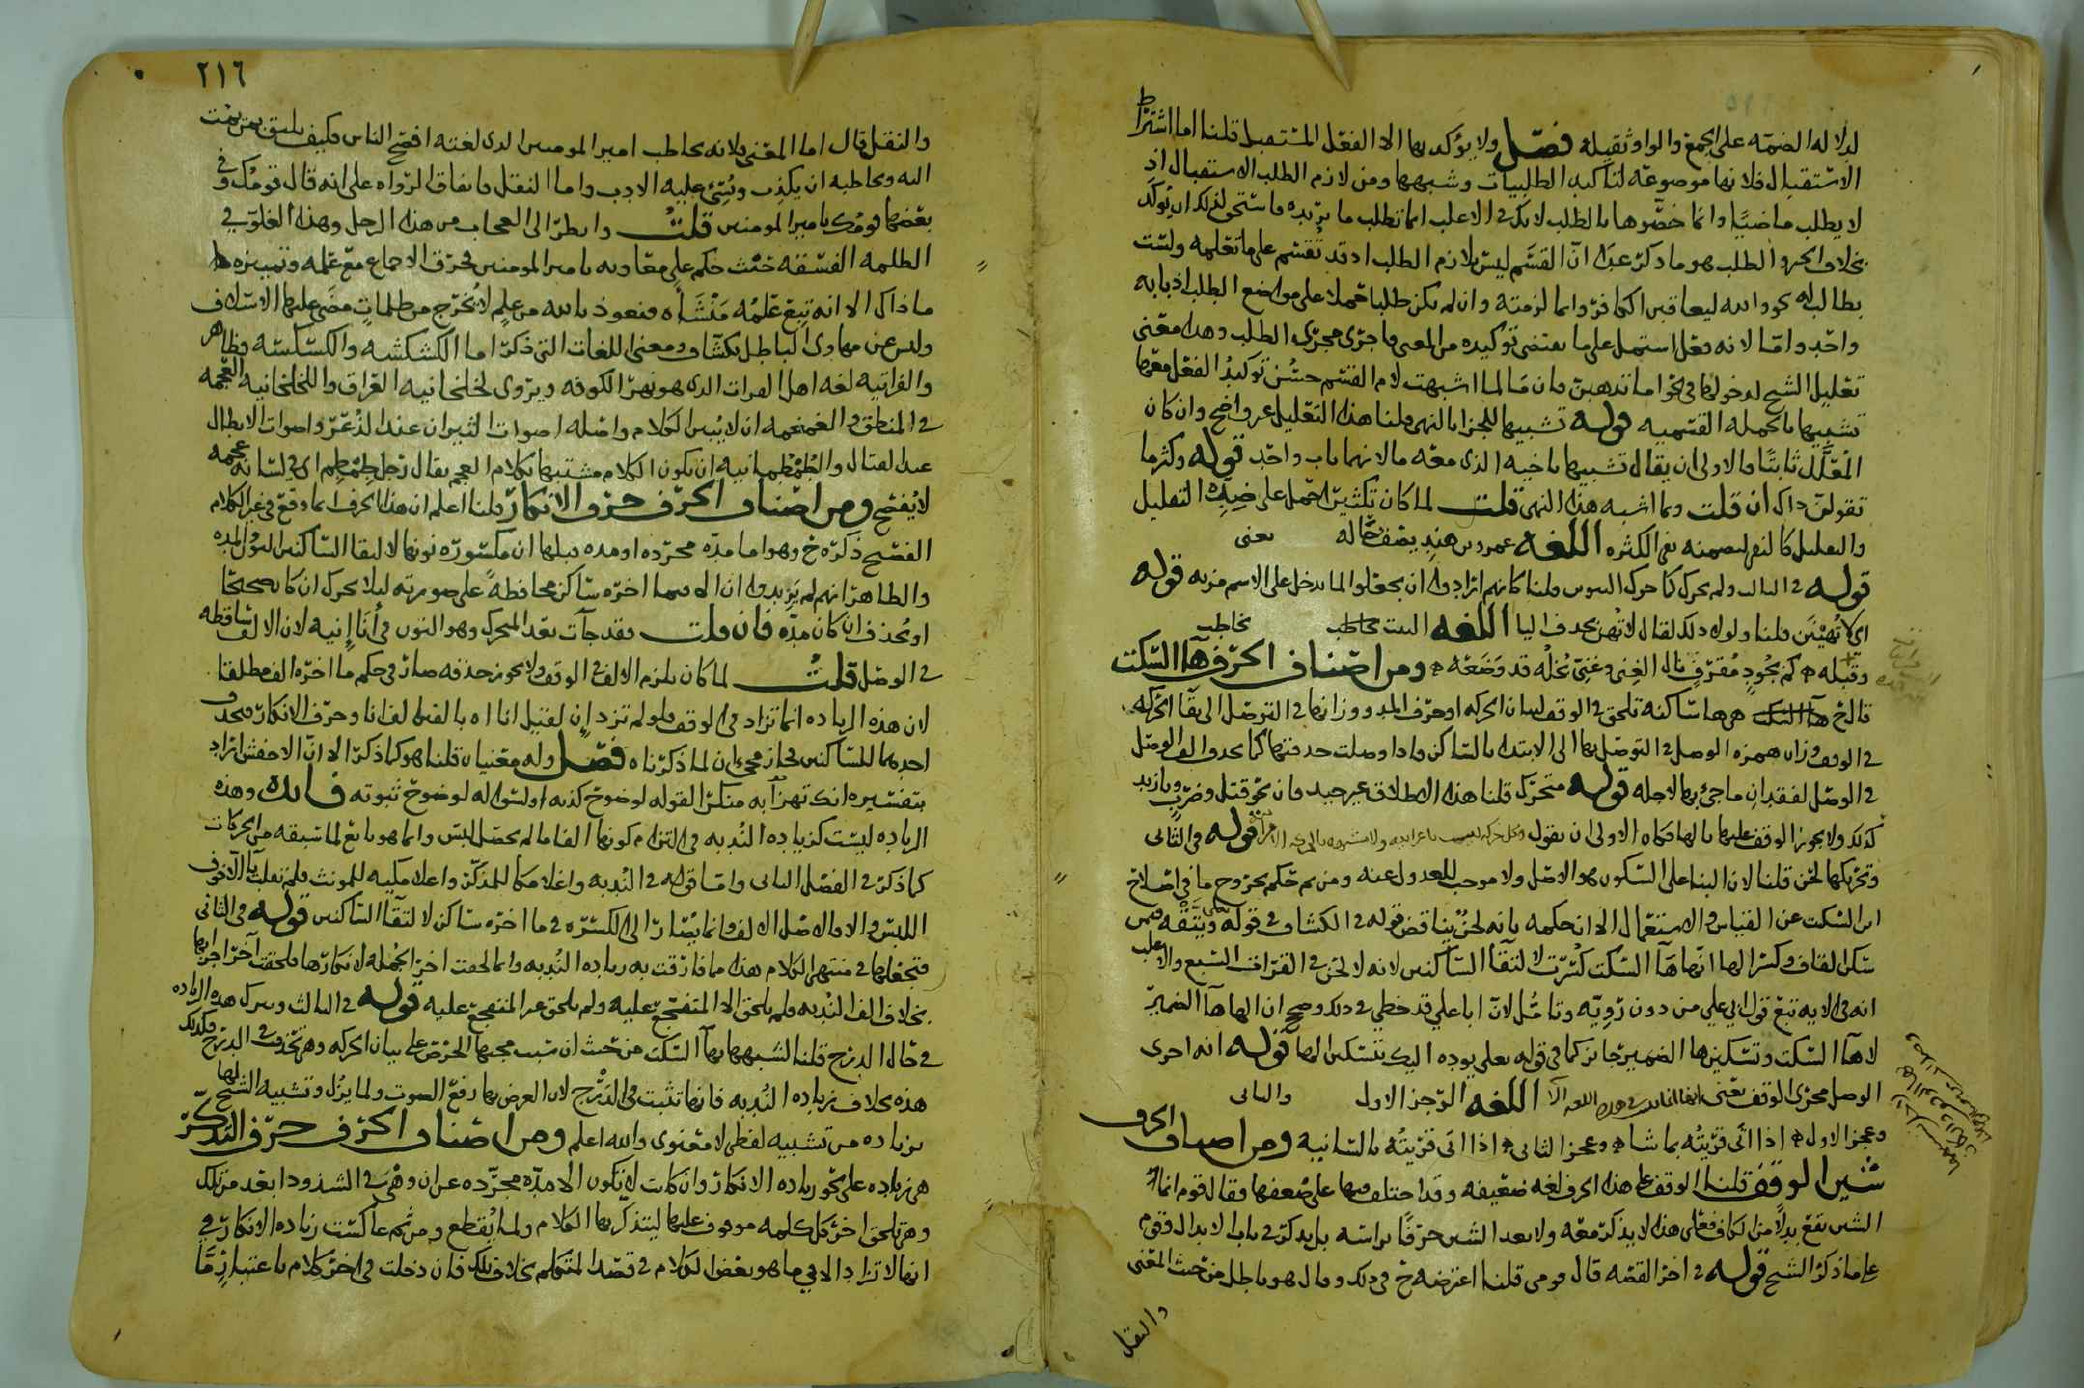 لدلاله الضمه على الجمع والواو ثقيله فصل ولا يؤكد بها الا الفعل المستقبل قلنا اما اشتراط
الاستقبال فلانها موضوعه لتاكيد الطلبيات وشبهها ومن لازم الطلب الاستقبال اذ
لا يطلب ماضيا وانما خصوها بالطلب لانك في الاغلب انما تطلب ما تريده فاستحق لذلك ان يؤكد
بخلاف الخبر والطلب هو ما ذكر عبد ان القسم ليس بلازم الطلب اذ قد تقسم على ما تعلمه ولست
بطالب له نحو والله ليعاقبن الكافر وانما لزمته وان لم يكن طلبا حملا على مواضع الطلب اذ بابه
واحد واما لانه فعل استعمل على ما يقتضي توكيده من المعنى فاجرى مجرى الطلب وهذا معنى
تعليل الشيخ لدخولها في نحو اما تذهبن فان ما لما اشبهت لام القسم حسن توكيد الفعل معها
تشبيها بالجمله القسميه قوله تشبيها للجزا بالنهي قلنا هذا التعليل غير واضح وان كان
المعلل ثابتا فالاولى ان يقال تشبيها باخيه الذى معه ما لانهما باب واحد قوله وكثر ما
تقولن ذاك ان قلت وما اشبه هذا النهي قلت لما كان تكثيرا حمل على ضده التقليل
والتقليل كالنفي لتضمنه نفي الكثره اللغه عمرو بن هند يصف خاله يعنى
قوله في الثالث ولم يحرك كما حرك التنوين قلنا كانهم ارادوا ان يجعلوا لما يدخل على الاسم مزيه قوله
اي لا تهينن قلنا ولولا ذلك لقال لا تهن بحذف اليا اللغه البيت يخاطب
وقبله كم بجود مقرف نال الغنى وغني بخله قد وضعه ومن اصناف الحرف ها السكت
قال خ هي ها ساكنه تلحق في الوقف لبيان الحركه او حرف المد ووزانها في التوصل الى بقا الحركه
في الوقف وزان همزه الوصل في التوصل بها الى الابتدا بالساكن فاذا وصلت حذفتها كما تحذف الف الوصل
في الوصل لفقدان ما جئ بها لاجله قوله متحرك قلنا هذا الاطلاق غير جيد فان نحو قتل وضرب ويا زيد
كذلك ولا يجوز الوقف عليها بالها فكان الاولى ان يقول وكل حركه ليست باعرابيه ولا مشبهه بالاعرابيه قوله في الثانى
وتحريكها لحن قلنا لان البنا على السكون هو الاصل ولا موجب للعدول عنه ومن ثم حكم بخروج ما في اصلاح
ابن السكت عن القياس والاستعمال الا ان حكمه بانه لحن يناقض قوله في الكشاف في قوله ويتقه فيمن
سكن القاف وكسر الها انها ها السكت كسرت لالتقا الساكنين لانه لا لحن في القرات السبع والاغلب
انه في الايه تبع قول ابي علي من دون رويه وتامل لان ابا علي قد خطي في ذلك وصح ان الها ها الضمير
لا ها السكت وتسكين ها الضمير جائز كما في قوله تعلى يوده اليك بتسكين الها قوله انه اجرى
الوصل مجرى الوقف يعنى اللغه الرجز الاول والثانى
وعجز الاول اذا اتى قربته بما شا وعجز الثانى اذا اتى قربته بالسانيه ومن اصناف الحرف
شين الوقف قلنا الوقف على هذا الحرف لغه ضعيفه وقد اختلف فيها على ضعفها فقال قوم انما
الشين تقع بدلا من الكاف فعلى هذا لا يذكر معه ولا يعد الشين حرفا براسه بل يذكر في باب الابدال وقوم
على ما ذكر الشيخ قوله في اخر القصه قال قومى قلنا اعترضه خ في ذلك وقال هو باطل من حيث المعنى
والنقل
٢١٦
والنقل قال اما المعنى فلانه يخاطب امير المومنين الذى لغته افصح الناس فكيف يليق بمن يمت
اليه ويخاطبه ان يكذب ويسئ عليه الادب واما النقل فاتفاق الرواه على انه قال قومك وفي
بعضها قومك يا مير المومنين قلت وانظر الى العجاب من هذا الرجل وهذا الغلو في
الظلمه الفسقه حيث حكم على معاويه بامير المومنين فخرق الاجماع مع علمه وتمييزه
ما ذاك الا انه تبع علمه منشاه فنعوذ بالله من علم لا يخرج من ظلمات مضى عليها الاسلاف
وليس عن مهاوى الباطل بكشاف ومعنى اللغات التى ذكر اما الكشكشه والكسكسه فظاهر
والفراتيه لغه اهل الفرات الذى هو نهر الكوفه ويروى لخلخانيه العراق واللخلخانيه العجمه
في المنطق والغمغمه ان لا يبين الكلام واصله اصوات الثيران عند الذعر واصوات الابطال
عند القتال والطمطمانيه ان يكون الكلام مشتبها بكلام العجم يقال رجل طمطم اى في لسانه عجمه
لا يفصح ومن اصناف الحرف حرف الانكار قلنا اعلم ان هذا الحرف انما وقع في غير الكلام
الفصيح ذكره خ وهو اما مده مجرده او مده قبلها ان مكسوره نونها لالتقا الساكنين النون والمده
والظاهر انهم لم يزيدوا ان الا فيما اخره ساكن محافظه على صورته ليلا يحرك ان كان صحيحا
او يحذف ان كان مده فان قلت فقد جات بعد المتحرك وهو النون في أنا إنيه لان الالف ساقطه
في الوصل قلت لما كان يلزم الالف في الوقف ولا يجوز حذفه صار في حكم ما اخره الف مطلقا
لان هذه الزياده انما تزاد في الوقف فلو لم تزد ان لقيل انا اه بالفين الف انا وحرف الانكار فتحذف
احدهما للساكنين فجاز مجي ان لما ذكرناه فصل وله معنيان قلنا هو كما ذكر الا ان الاخفش اراد
بتفسيره انك تهزأ به منكرا لقوله لوضوح كذبه او لسواله لوضوح ثبوته فايده وهذه
الزياده ليست كزياده الندبه في التزام كونها الفا ما لم يحصل لبس وانما هو تابع لما سبقه من الحركات
كما ذكر في الفصل الثانى واما قوله في الندبه واغلامكاه للمذكر واغلامكيه للمونث فلم تقلب يا الا خوف
اللبس والا فالاصل الالف وانما يصار الى الكسره في ما اخره ساكن لالتقا الساكنين قوله في الثانى
فتجعلها في منتهى الكلام هذا مما فارقت به زياده الندبه وانما لحقت اخر الجمله لانكارها فلحقت آخر اجزائها
بخلاف الف الندبه فلم يلحق الا المتفجع عليه ولم يلحق غير المتفجع عليه قوله في الثالث وتترك هذه الزياده
في حال الدرج قلنا لشبهها بها السكت من حيث ان سبب مجيها الحرص على بيان الحركه وهي تحذف في الدرج فكذلك
هذه بخلاف زياده الندبه فانها تثبت في الدرج لان الغرض بها رفع الصوت ولما يزل وتشبيه الشيخ لها
بزياده من تشبيه لفظى لا معنوى والله اعلم ومن اصناف الحرف حرف التذكر
هي زياده على نحو زياده الانكار وان كانت لا تكون الا مده مجرده عن ان وهي في الشذوذ ابعد من تلك
وهي تلحق اخر كل كلمه موقوف عليها ليتذكر بها الكلام ولما يقطع ومن ثم عاكست زياده الانكار في
انها لا تزاد الا في ما هو بعض الكلام في قصد المتكلم بخلاف تلك فان دخلت في اخر كلام باعتبار ما